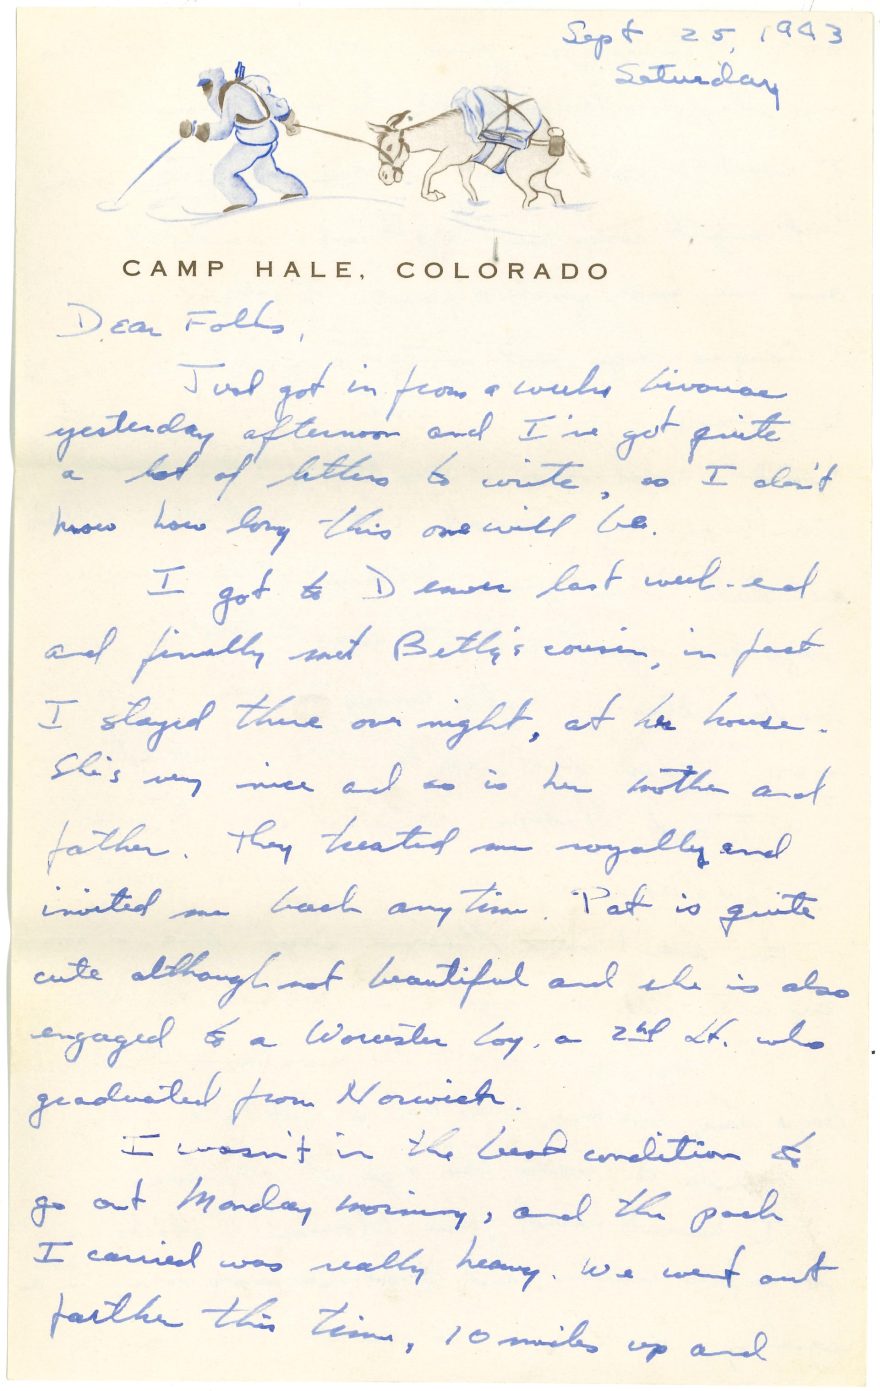 Sept 25, 1943
Saturday
CAMP HALE, COLORADO
Dear Folks,
Just got in from a weeks bivouac
yesterday afternoon and I've got quite
a lot of letters to write, so I don't
know how long this one will be.
I got to Denver last week-end
and finally met Betty's cousin, in fact
I stayed there over night, at her house.
She's very nice and so is her mother and
father. They treated me royally and
invited me back anytime. Pat is quite
cute although not beautiful and she is also
engaged to a Worcester boy, a 2nd Lt. who
graduated from Norwich.
I wasn't in the best condition to
go out Monday morning, and the pack
I carried was really heavy. We went out
farther this time, 10 miles up and